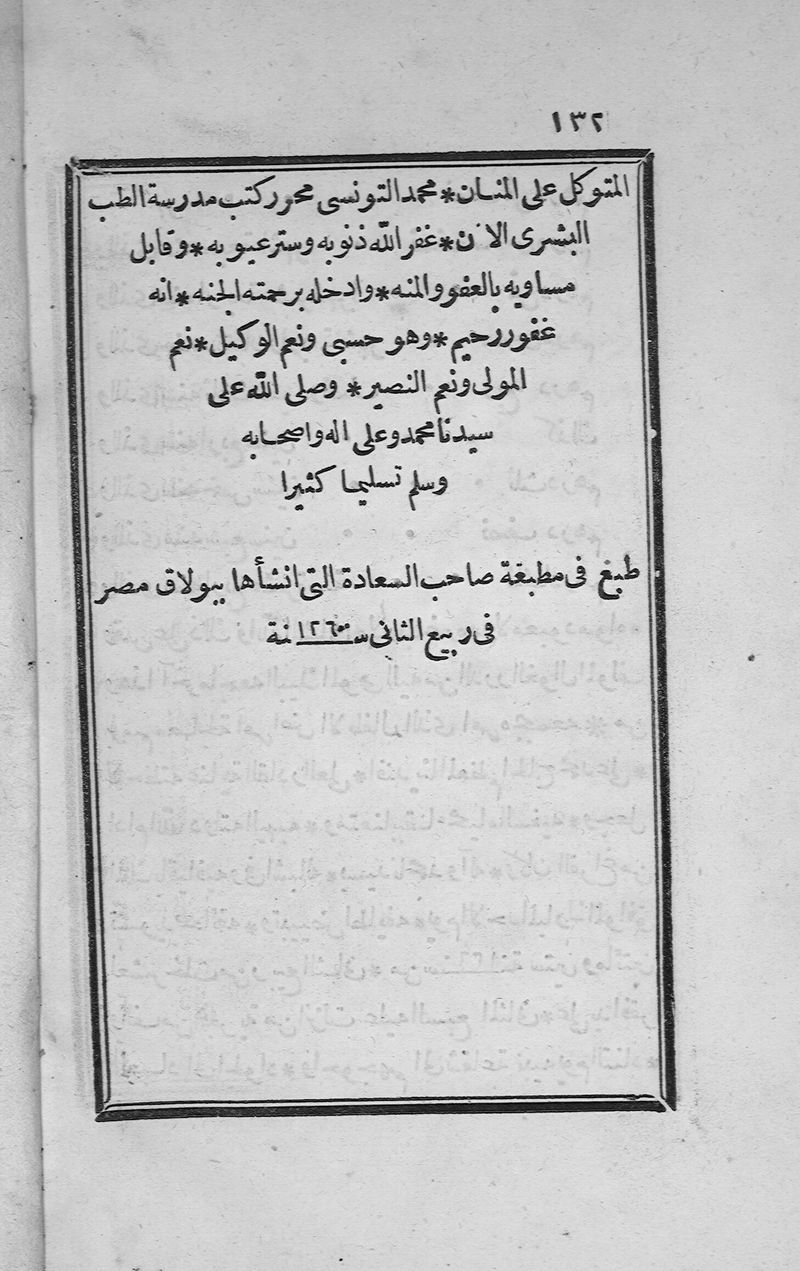 ١٣٢
المتوكل على المنان * محمد التونسى محرر كتب مدرسة الطب
البشرى الآن * غفر الله ذنوبه وستر عيوبه * وقابل
مساويه بالعفو والمنه * وادخله برحمته الجنه * انه
غفور رحيم * وهو حسبى ونعم الوكيل * نعم
المولى ونعم النصير * وصلى الله على
سيدنا محمد وعلى اله واصحابه
وسلم تسليما كثيرا
طبغ فى مطبغة صاحب السعادة التى انشأها ببولاق مصر
فى ربيع الثانى سنة ١٢٦٠